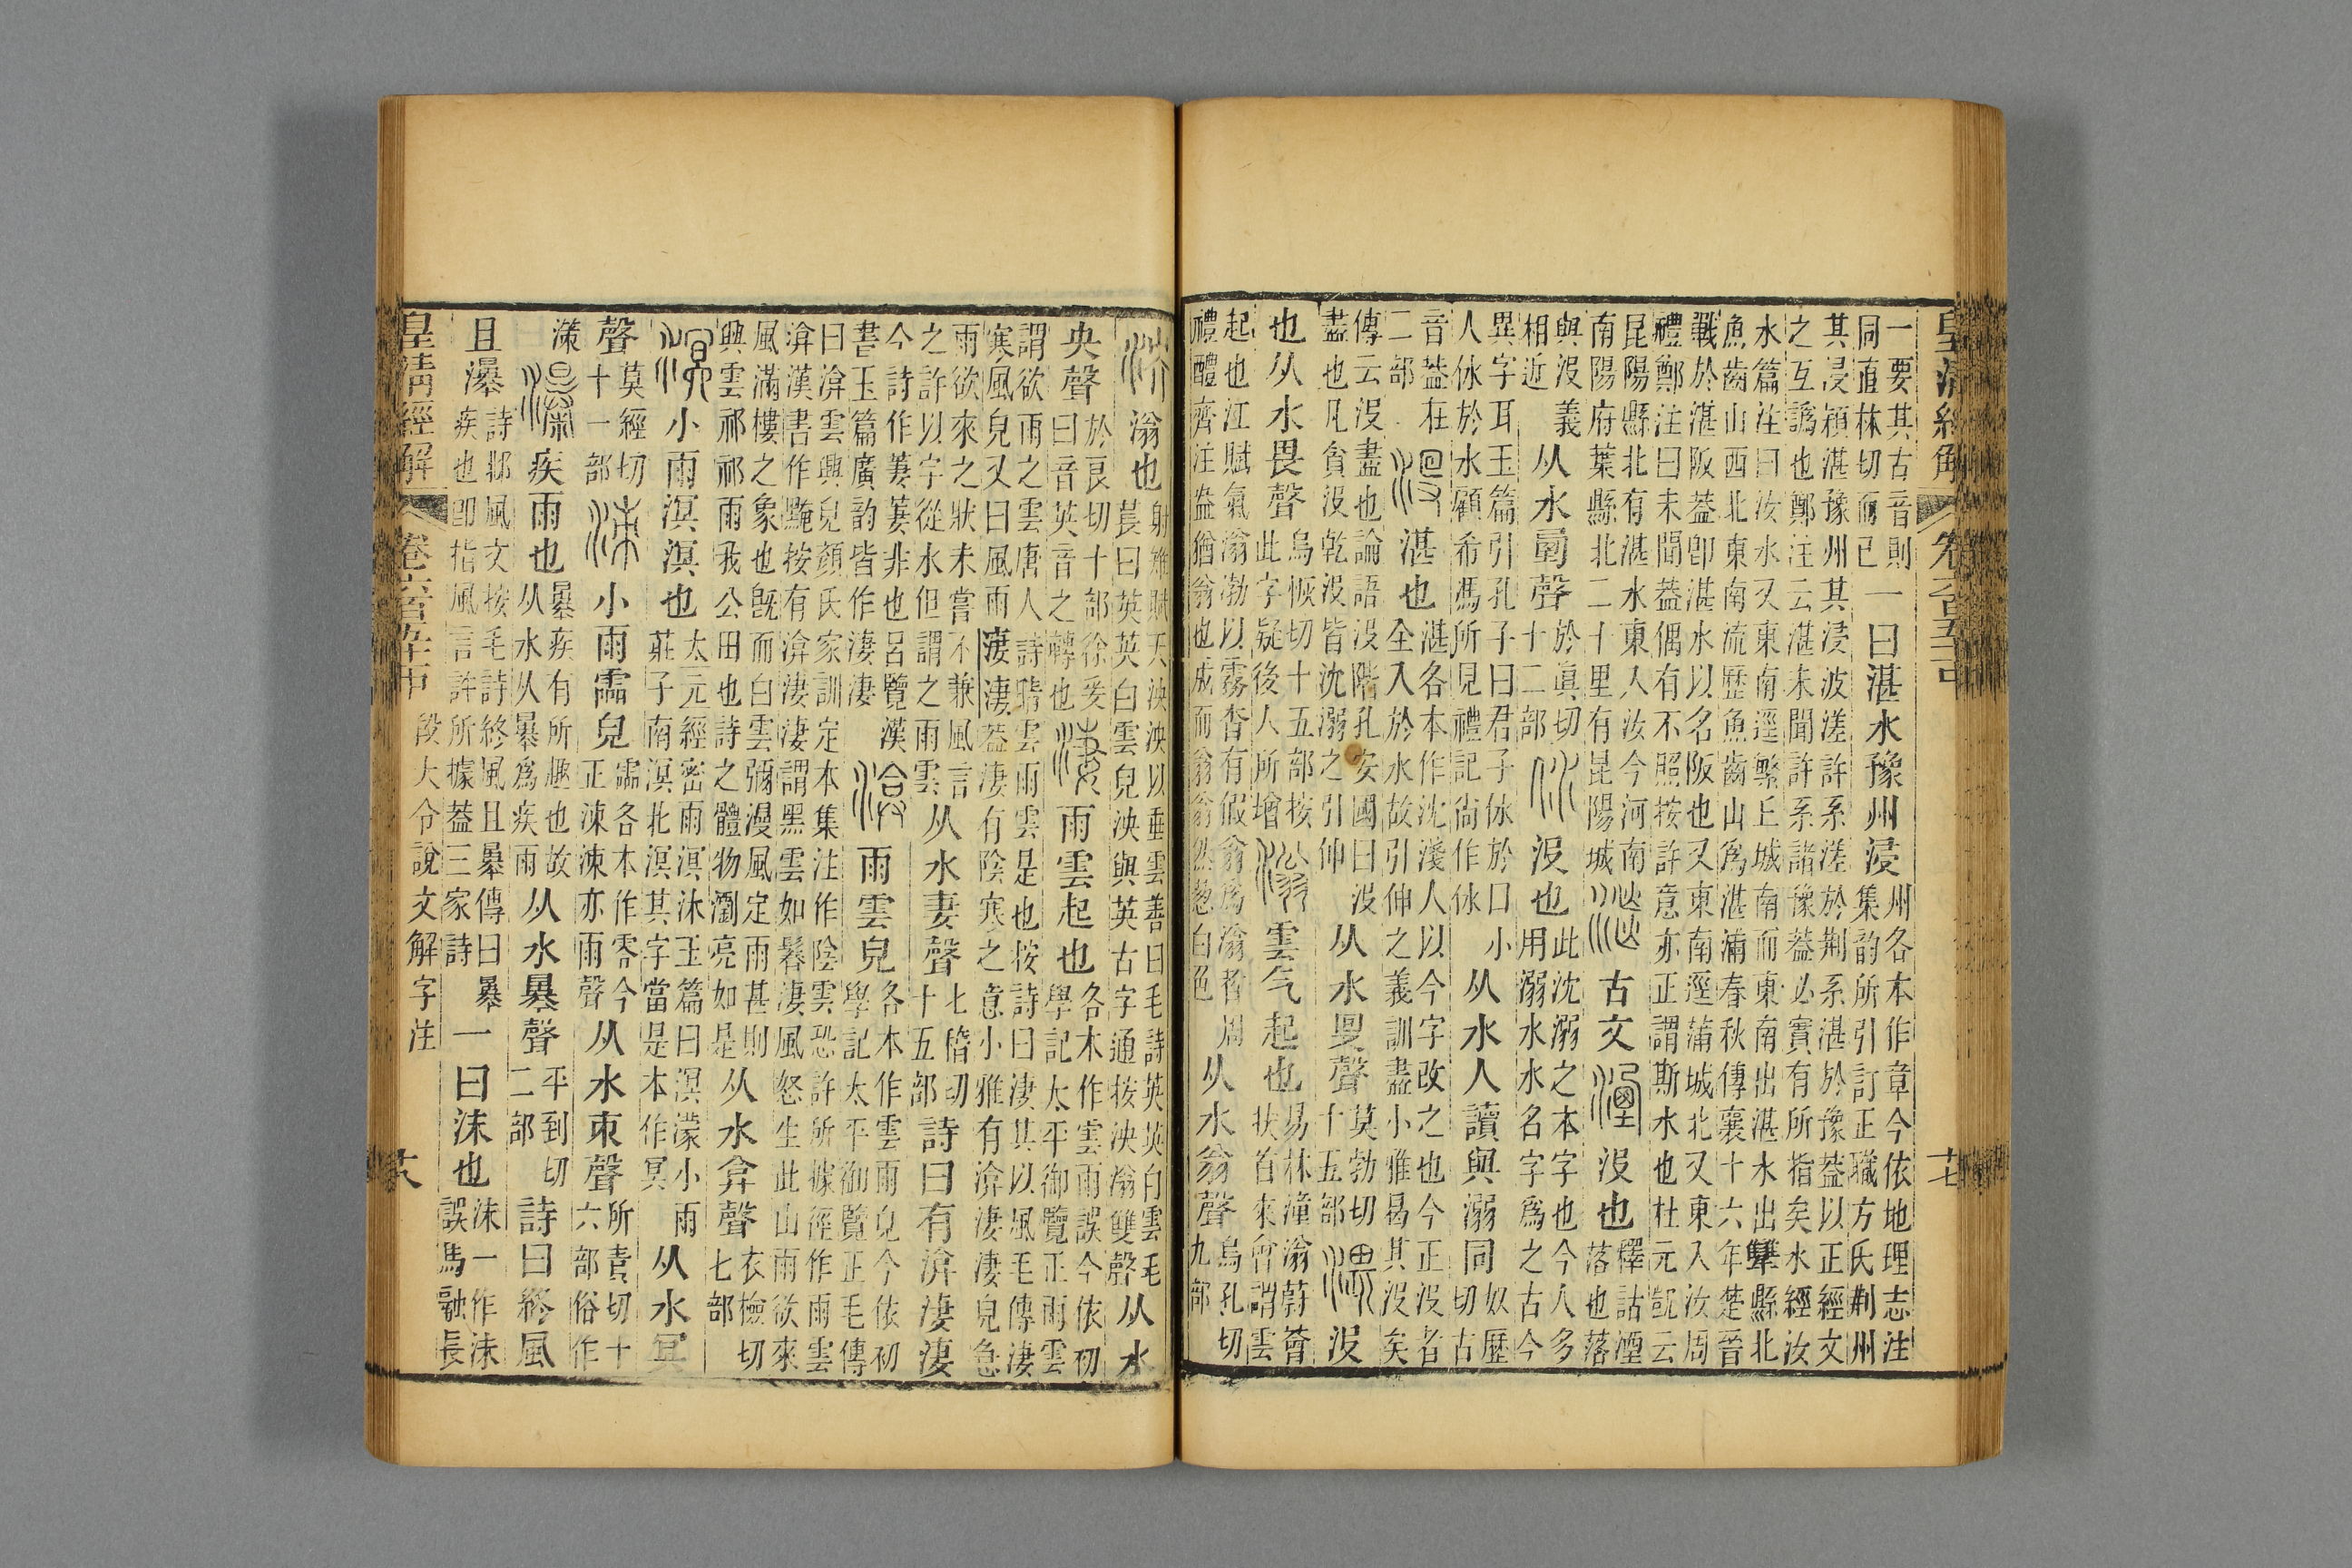 一要其古音則同直林切而已一曰湛水豫州浸州各本作章今依地理志注集韵所引訂正職方氏荆州
其浸潁湛豫州其浸波溠許系溠於荆系湛於豫蓋以正經文之互譌也鄭注云湛未聞許系諸豫蓋必實有所指矣水經汝
水篇注曰汝水又東南逕繁丘城南而東南出湛水出犨縣北魚齒山西北東南流歷魚齒山爲湛浦春秋傳襄十六年楚晉
戰於湛阪蓋卽湛水以名阪也又東南逕蒲城北又東入汝周禮鄭注曰未聞蓋偶有不照按許意亦正謂斯水也杜元凱云
昆陽縣北有湛水東入汝今河南南陽府葉縣北二十里有昆陽城古文湮沒也釋詁湮落也落
與沒義相近从水垔聲於眞切十二部㲻沒也此沈溺之本字也今人多用溺水水名字爲之古今
異字耳玉篇引孔子曰君子㲻於口小人㲻於水顧希馮所見禮記尙作㲻从水人讀與溺同奴歷切古
音蓋在二部沒湛也湛各本作沈淺人以今字改之也今正沒者全入於水故引伸之義訓盡小雅曷其沒矣
傳云沒盡也論語沒階孔安國曰沒盡也凡貪沒乾沒皆沈溺之引伸从水𠬛聲莫勃切十五部渨沒
也从水畏聲烏恢切十五部按此字疑後人所增滃雲气起也易林潼滃蔚薈扶首來會謂雲
起也江賦氣滃渤以霧杳有假翁爲滃者周禮醴齊注盎猶翁也成而翁翁然葱白色从水翁聲烏孔切九部
泱滃也射雉賦天泱泱以垂雲善曰毛詩英英白雲毛萇曰英英白雲皃泱與英古字通按泱滃雙聲从水
央聲於良切十部徐爰曰音英音之轉也淒雨雲起也各本作雲雨誤今依初學記太平御覽正雨雲
謂欲雨之雲唐人詩晴雲雨雲是也按詩曰淒其以風毛傳淒寒風皃又曰風雨淒淒蓋淒有陰寒之意小雅有渰淒淒皃急
雨欲來之狀未嘗不兼風言之許以字從水但謂之雨雲从水妻聲七稽切十五部詩曰有渰淒淒
今詩作萋萋非也呂覽漢書玉篇廣韵皆作淒淒渰雨雲皃各本作雲雨皃今依初學記太平御覽正毛傳
曰渰雲興皃顏氏家訓定本集注作陰雲恐許所據徑作雨雲渰漢書作黤按有渰淒淒謂黑雲如鬊淒風怒生此山雨欲來
風滿樓之象也旣而白雲彌漫風定雨甚則興雲祁祁雨我公田也詩之體物瀏亮如是从水弇聲衣檢切七部
溟小雨溟溟也太元經密雨溟沐玉篇曰溟濛小雨莊子南溟北溟其字當是本作冥从水冥
聲莫經切十一部涑小雨霝皃霝各本作零今正涑涑亦雨聲从水朿聲所責切十六部俗作
漺瀑疾雨也暴疾有所趣也故从水从暴爲疾雨从水暴聲平到切二部詩曰終風
且瀑詩邶風文按毛詩終風且暴傳曰暴疾也卽指風言許所據蓋三家詩一曰沫也沫一作沬誤馬融長
皇清經解 段大令說文解字注